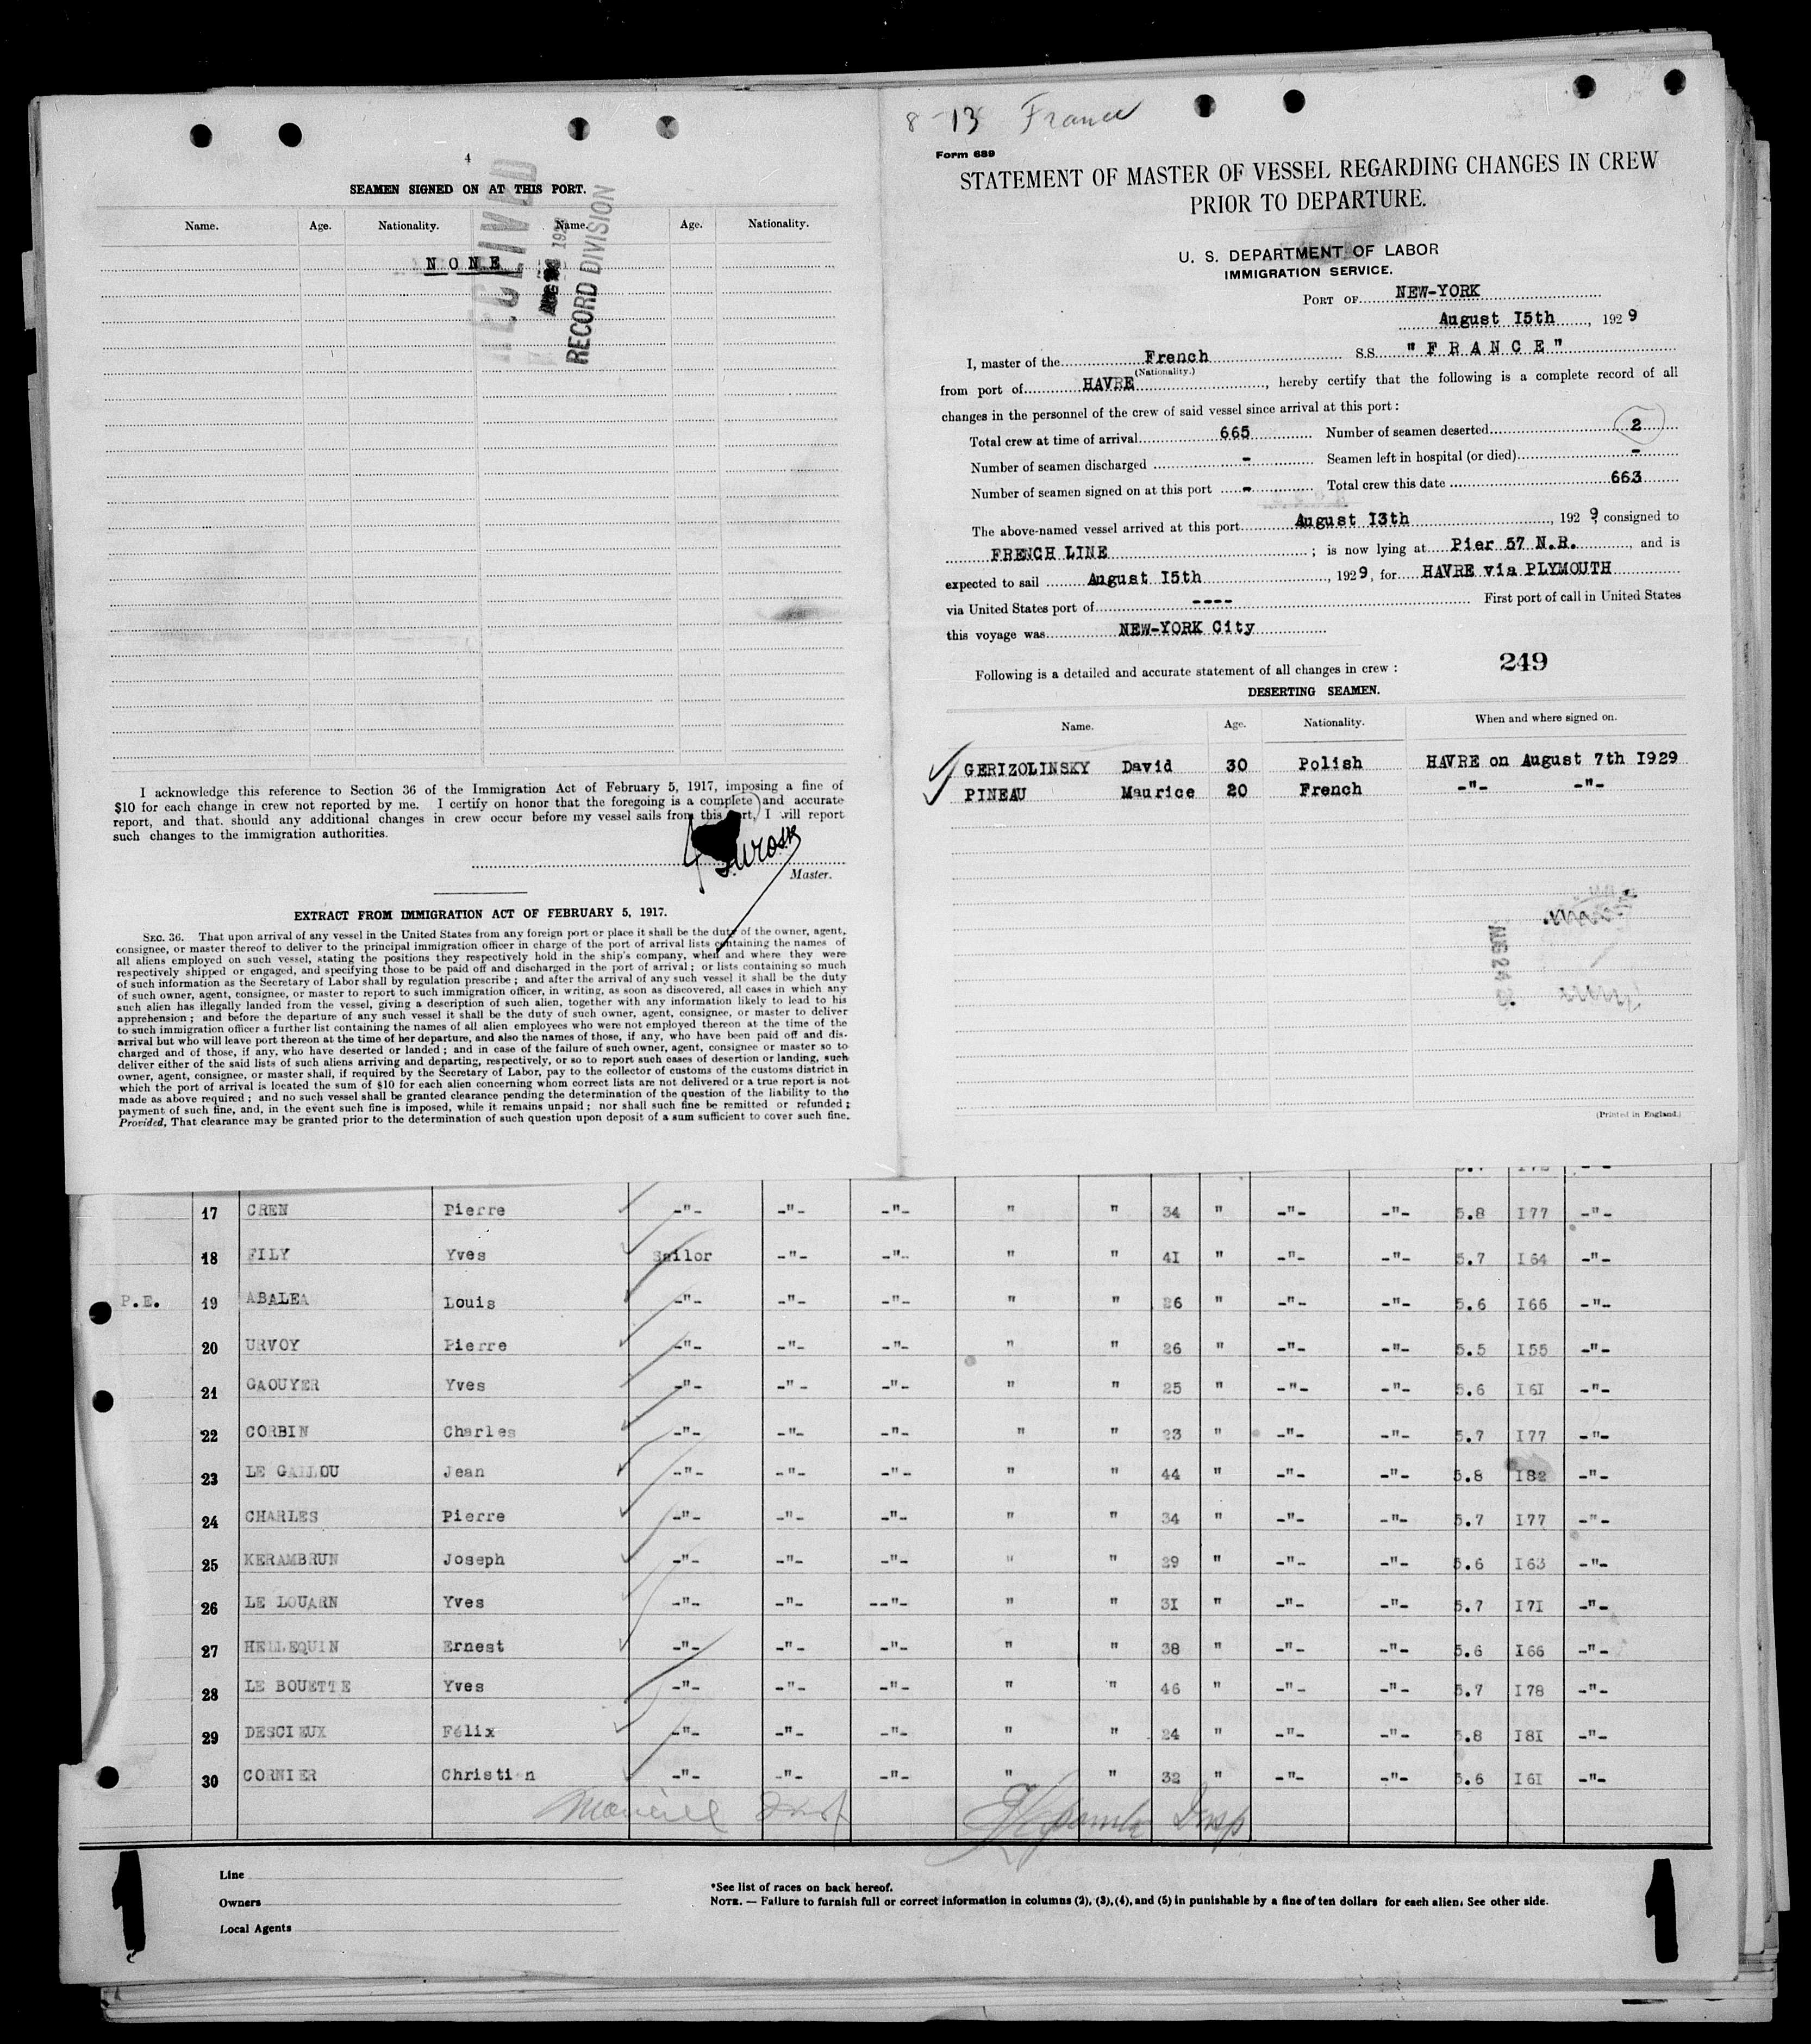 4
SEAMEN SIGNED ON AT THIS PORT.
Name. Age. Nationality. Name. Age. Nationality.
NONE
RECORD DIVISION
I acknowledge this reference to Section 36 of the Immigration Act of February 5, 1917, imposing a fine of
$10 for each change in crew not reported by me. I certify on honor that the foregoing is a complete and accurate
report, and that. should any additional changes in crew occur before my vessel sails from this port, I will report
such changes to the immigration authorities.
Master.
EXTRACT FROM IMMIGRATION ACT OF FEBRUARY 5, 1917.
SEC. 36. That upon arrival of any vessel in the United States from any foreign port or place it shall be the duty of the owner, agent,
consignee, or master thereof to deliver to the principal immigration officer in charge of the port of arrival lists containing the names of
all aliens employed on such vessel, stating the positions they respectively hold in the ship's company, when and where they were
respectively shipped or engaged, and specifying those to be paid off and discharged in the port of arrival; or lists containing so much
of such information as the Secretary of Labor shall by regulation prescribe; and after the arrival of any such vessel it shall be the duty
of such owner, agent, consignee, or master to report to such immigration officer, in writing, as soon as discovered, all cases in which any
such alien has illegally landed from the vessel, giving a description of such alien, together with any information likely to lead to his
apprehension; and before the departure of any such vessel it shall be the duty of such owner, agent, consignee, or master to deliver
to such immigration officer a further list containing the names of all alien employees who were not employed thereon at the time of the
arrival but who will leave port thereon at the time of her departure, and also the names of those, if any, who have been paid off and dis-
charged and of those, if any, who have deserted or landed; and in case of the failure of such owner, agent, consignee or master so to
deliver either of the said lists of such aliens arriving and departing, respectively, or so to report such cases of desertion or landing, such
owner, agent, consignee, or master shall, if required by the Secretary of Labor, pay to the collector of customs of the customs district in
which the port of arrival is located the sum of $10 for each alien concerning whom correct lists are not delivered or a true report is not
made as above required; and no such vessel shall be granted clearance pending the determination of the question of the liability to the
payment of such fine, and, in the event such fine is imposed, while it remains unpaid; nor shall such fine be remitted or refunded;
Provided, That clearance may be granted prior to the determination of such question upon deposit of a sum sufficient to cover such fine.
8-13 France
Form 689
STATEMENT OF MASTER OF VESSEL REGARDING CHANGES IN CREW
PRIOR TO DEPARTURE.
U. S. DEPARTMENT OF LABOR
IMMIGRATION SERVICE.
PORT OF NEW-YORK
August I5th, 1929
I, master of the French S.S. "FRANCE"
(Nationality.)
from port of HAVRE, hereby certify that the following is a complete record of all
changes in the personnel of the crew of said vessel since arrival at this port:
Total crew at time of arrival 665 Number of seamen deserted 2
Number of seamen discharged - Seamen left in hospital (or died) -
Number of seamen signed on at this port - Total crew this date 663
The above-named vessel arrived at this port August I3th, 1929, consigned to
FRENCH LINE; is now lying at Pier 57 N.R., and is
expected to sail August I5th, 1929, for HAVRE via PLYMOUTH
via United States port of ---- First port of call in United States
this voyage was NEW-YORK City
Following is a detailed and accurate statement of all changes in crew: 249
DESERTING SEAMEN.
Name. Age. Nationality. When and where signed on.
GERIZOLINSKY David 30 Polish HAVRE on August 7th I929
PINEAU Maurice 20 French -"- -"-
(Printed in England.)
17 CREN Pierre -"- -"- -"- " " 34 " -"- -"- 5.8 I77 -"-
18 FILY Yves Sailor -"- -"- " " 4I " -"- -"- 5.7 I64 -"-
P.E. 19 ABALEA Louis -"- -"- -"- " " 26 " -"- -"- 5.6 I66 -"-
20 URVOY Pierre -"- -"- -"- " " 26 " -"- -"- 5.5 I55 -"-
21 GAOUYER Yves -"- -"- -"- " " 25 " -"- -"- 5.6 I6I -"-
22 CORBIN Charles -"- -"- -"- " " 23 " -"- -"- 5.7 I77 -"-
23 LE GALLOU Jean -"- -"- -"- " " 44 " -"- -"- 5.8 I82 -"-
24 CHARLES Pierre -"- -"- -"- " " 34 " -"- -"- 5.7 I77 -"-
25 KERAMBRUN Joseph -"- -"- -"- " " 29 " -"- -"- 5.6 I63 -"-
26 LE LOUARN Yves -"- -"- --"- " " 3I " -"- -"- 5.7 I7I -"-
27 HELLEQUIN Ernest -"- -"- -"- " " 38 " -"- -"- 5.6 I66 -"-
28 LE BOUETTE Yves -"- -"- -"- " " 46 " -"- -"- 5.7 I78 -"-
29 DESCIEUX Félix -"- -"- -"- " " 24 " -"- -"- 5.8 I8I -"-
30 CORNIER Christian -"- -"- -"- " " 32 " -"- -"- 5.6 I6I -"-
Insp
1 1
Line
Owners
Local Agents
*See list of races on back hereof.
NOTE. — Failure to furnish full or correct information in columns (2), (3), (4), and (5) in punishable by a fine of ten dollars for each alien. See other side.